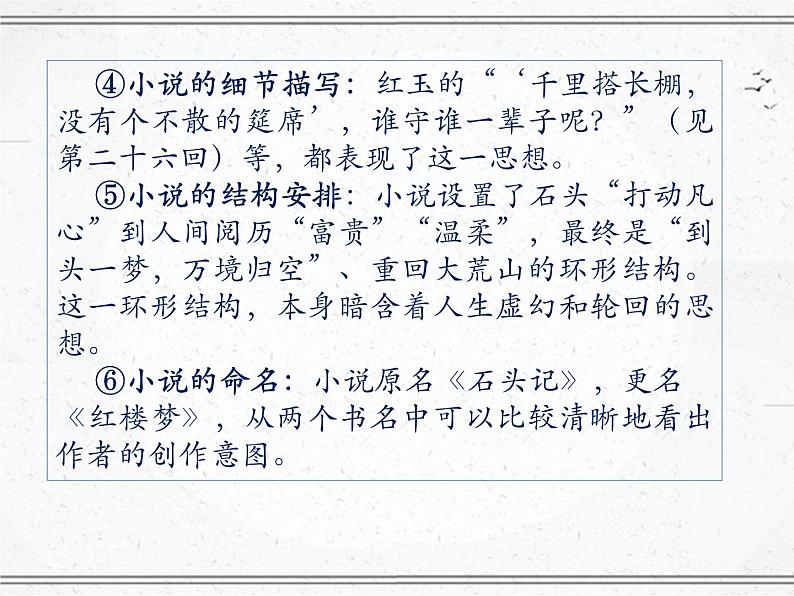 ④小说的细节描写：红玉的“‘千里搭长棚，
没有个不散的筵席’，谁守谁一辈子呢？”（见
第二十六回）等，都表现了这一思想。
⑤小说的结构安排：小说设置了石头“打动凡
心”到人间阅历“富贵”“温柔”，最终是“到
头一梦，万境归空”、重回大荒山的环形结构。
这一环形结构，本身暗含着人生虚幻和轮回的思
想。
⑥小说的命名：小说原名《石头记》，更名
《红楼梦》，从两个书名中可以比较清晰地看出
作者的创作意图。